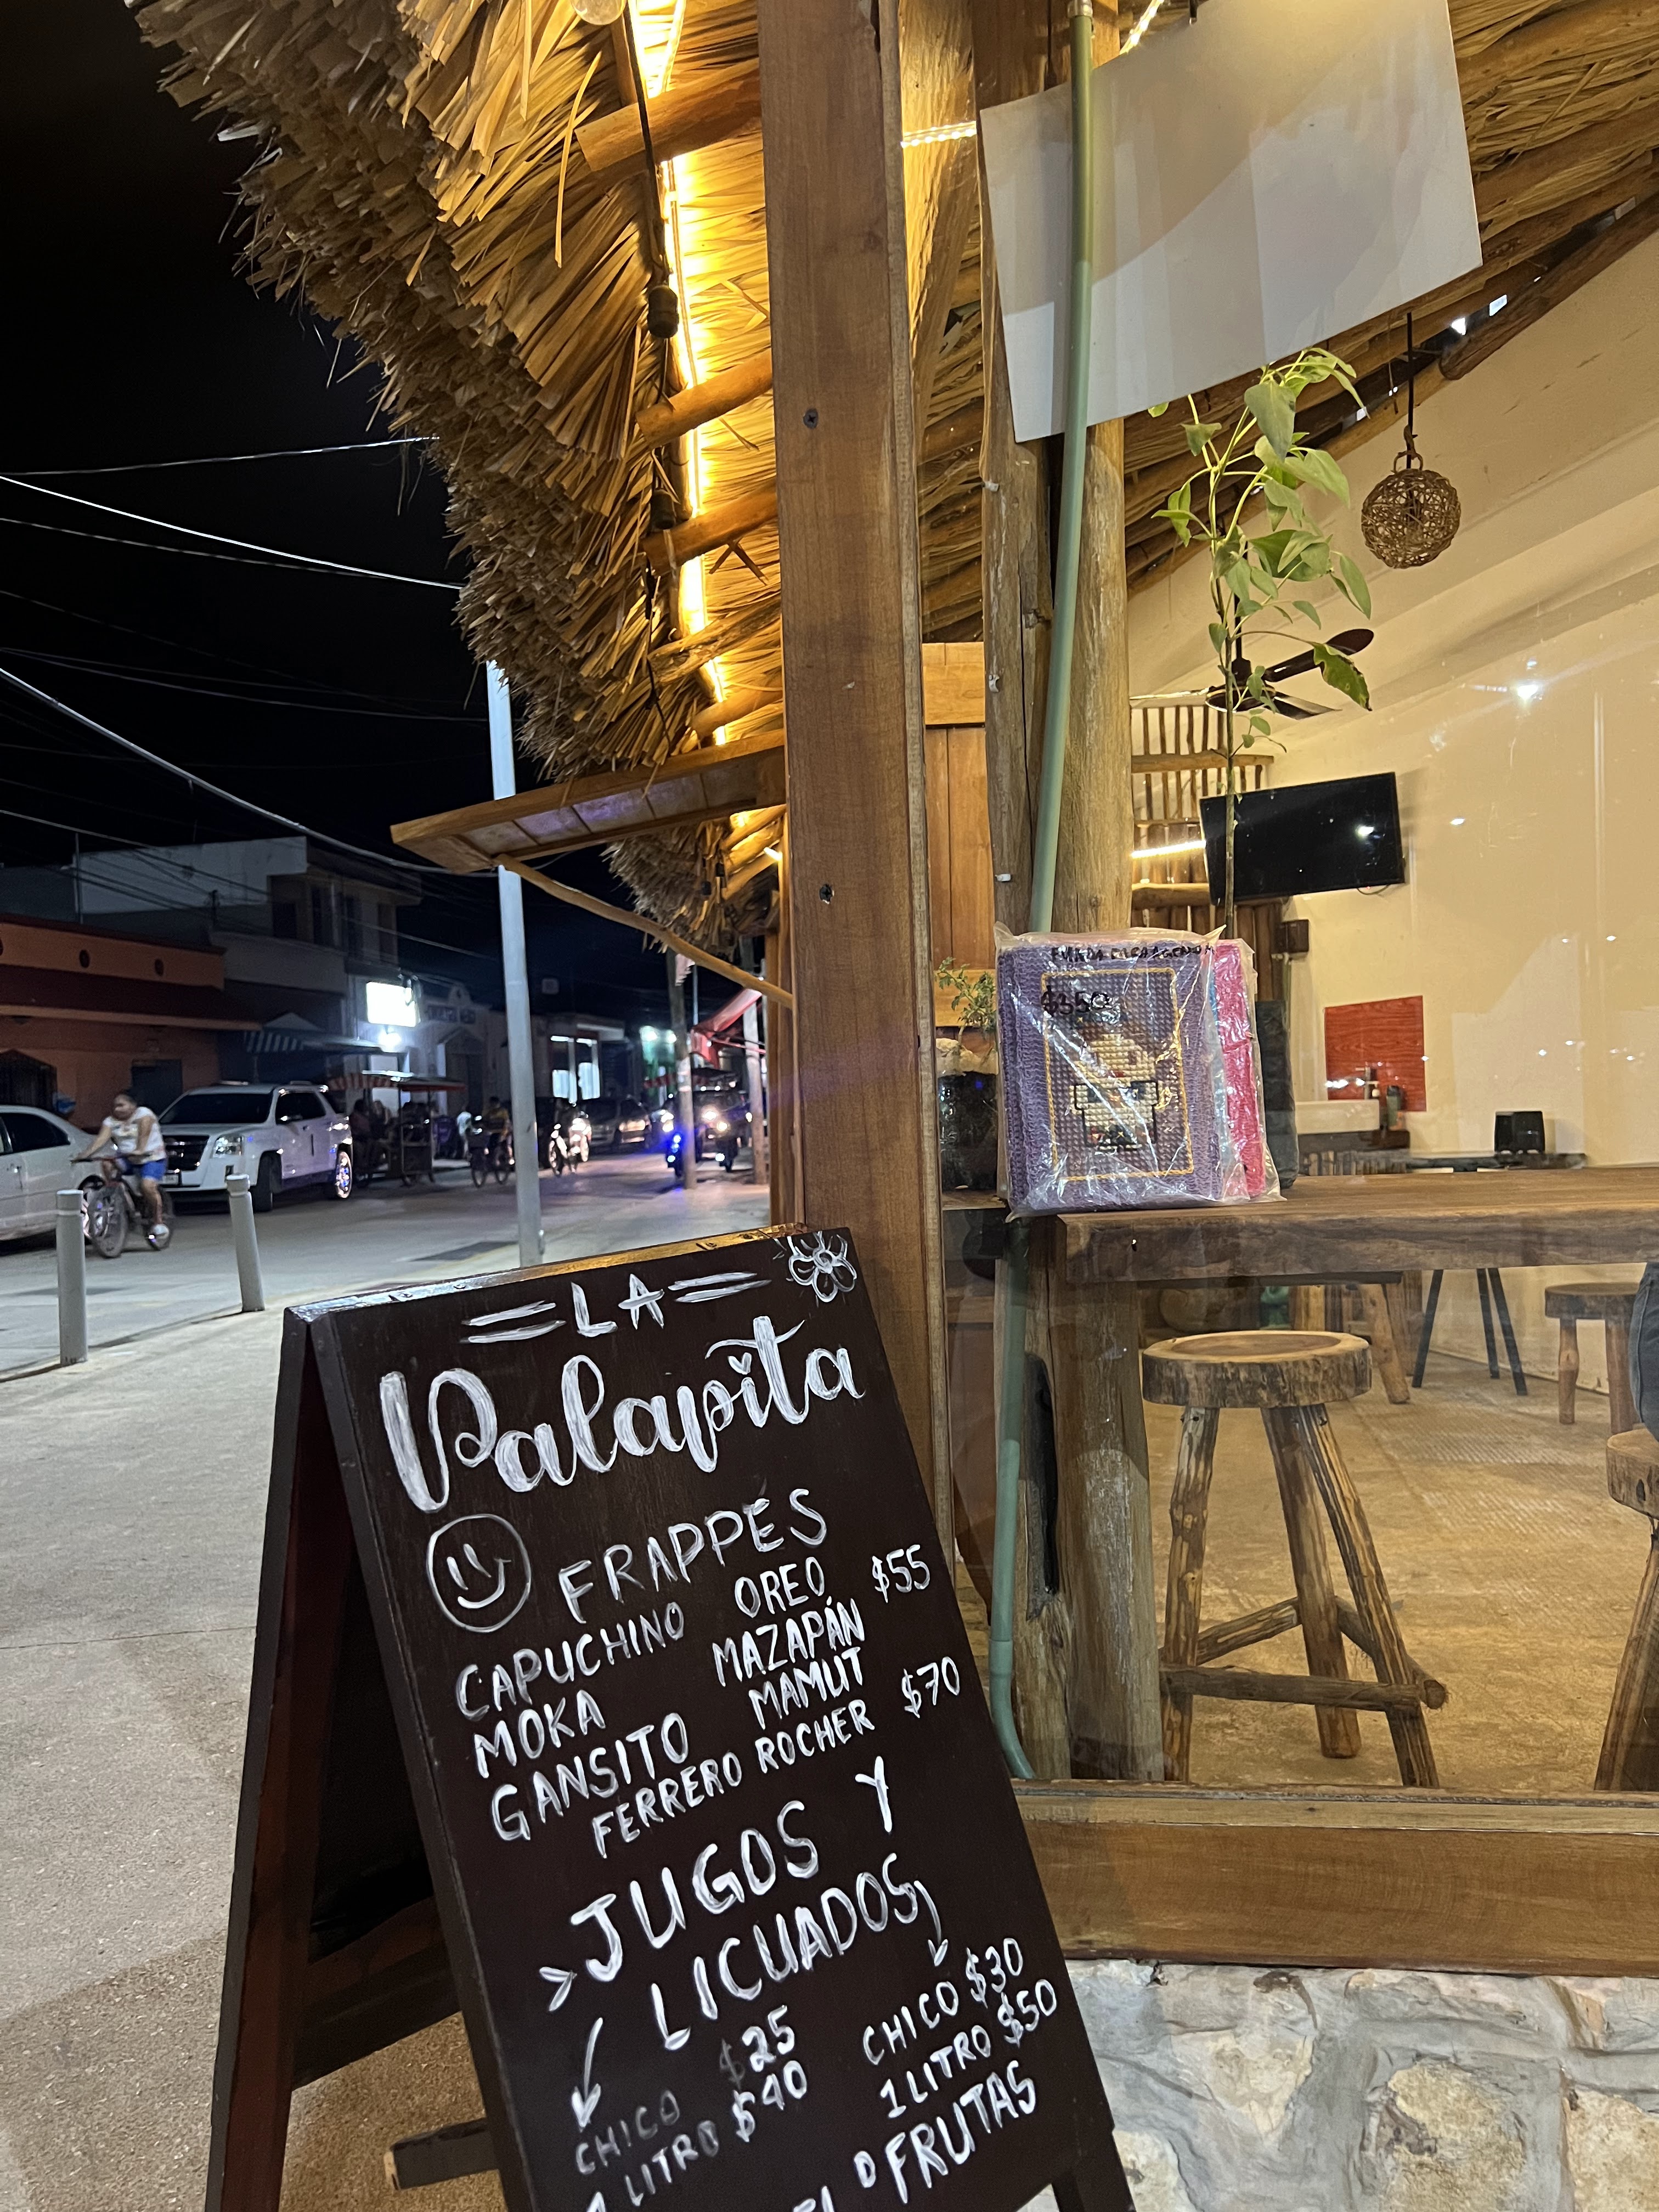 LA
Palapita
FRAPPÉS
CAPUCHINO OREO $55
MOKA MAZAPÁN
GANSITO MAMUT
FERRERO ROCHER $70
JUGOS Y
LICUADOS
CHICO $25
1 LITRO $40
CHICO $30
1 LITRO $50
FRUTAS
$350